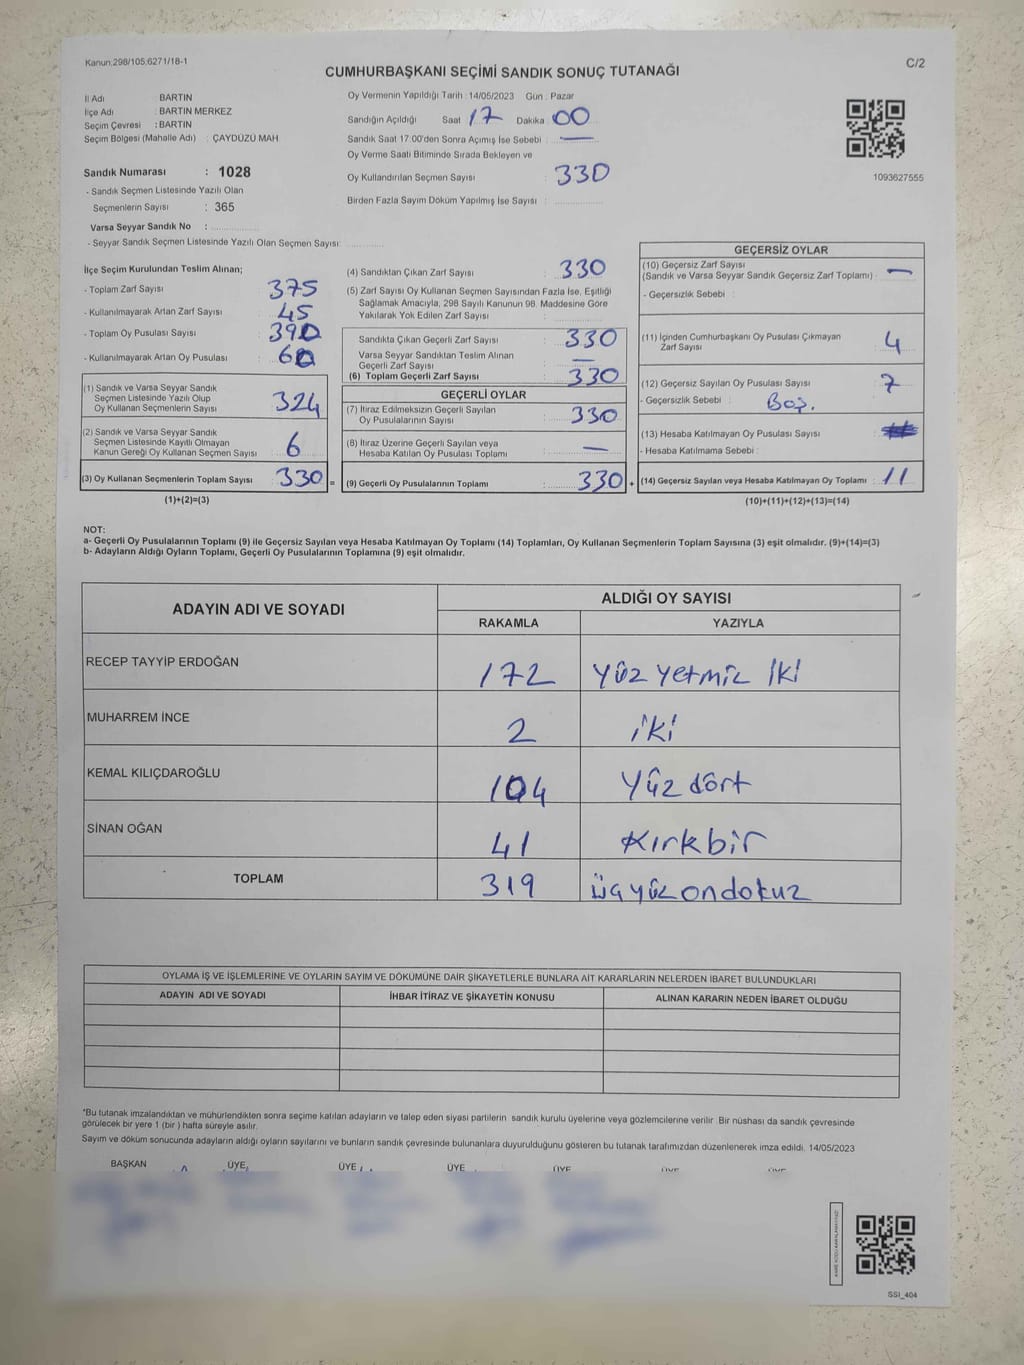 Kanun:298/105;6271/18-1
C/2
CUMHURBAŞKANI SEÇİMİ SANDIK SONUÇ TUTANAĞI
İl Adı BARTIN
İlçe Adı : BARTIN MERKEZ
Seçim Çevresi : BARTIN
Seçim Bölgesi (Mahalle Adı) : ÇAYDÜZÜ MAH
Sandık Numarası : 1028
- Sandık Seçmen Listesinde Yazılı Olan
Seçmenlerin Sayısı : 365
Varsa Seyyar Sandık No :
- Seyyar Sandık Seçmen Listesinde Yazılı Olan Seçmen Sayısı:
Oy Vermenin Yapıldığı Tarih : 14/05/2023 Gün : Pazar
Sandığın Açıldığı Saat 17 Dakika 00
Sandık Saat 17:00'den Sonra Açımış İse Sebebi : —
Oy Verme Saati Bitiminde Sırada Bekleyen ve
Oy Kullandırılan Seçmen Sayısı : 330
Birden Fazla Sayım Döküm Yapılmış İse Sayısı :
1093627555
İlçe Seçim Kurulundan Teslim Alınan;
- Toplam Zarf Sayısı : 375
- Kullanılmayarak Artan Zarf Sayısı : 45
- Toplam Oy Pusulası Sayısı : 390
- Kullanılmayarak Artan Oy Pusulası : 60
(1) Sandık ve Varsa Seyyar Sandık
Seçmen Listesinde Yazılı Olup
Oy Kullanan Seçmenlerin Sayısı : 324
(2) Sandık ve Varsa Seyyar Sandık
Seçmen Listesinde Kayıtlı Olmayan
Kanun Gereği Oy Kullanan Seçmen Sayısı : 6
(3) Oy Kullanan Seçmenlerin Toplam Sayısı : 330 =
(1)+(2)=(3)
(4) Sandıktan Çıkan Zarf Sayısı : 330
(5) Zarf Sayısı Oy Kullanan Seçmen Sayısından Fazla İse, Eşitliği
Sağlamak Amacıyla, 298 Sayılı Kanunun 98. Maddesine Göre
Yakılarak Yok Edilen Zarf Sayısı :
Sandıkta Çıkan Geçerli Zarf Sayısı : 330
Varsa Seyyar Sandıktan Teslim Alınan
Geçerli Zarf Sayısı : —
(6) Toplam Geçerli Zarf Sayısı : 330
GEÇERLİ OYLAR
(7) İtiraz Edilmeksizin Geçerli Sayılan
Oy Pusulalarının Sayısı : 330
(8) İtiraz Üzerine Geçerli Sayılan veya
Hesaba Katılan Oy Pusulası Toplamı : —
(9) Geçerli Oy Pusulalarının Toplamı : 330 +
GEÇERSİZ OYLAR
(10) Geçersiz Zarf Sayısı
(Sandık ve Varsa Seyyar Sandık Geçersiz Zarf Toplamı) : —
- Geçersizlik Sebebi :
(11) İçinden Cumhurbaşkanı Oy Pusulası Çıkmayan
Zarf Sayısı : 4
(12) Geçersiz Sayılan Oy Pusulası Sayısı : 7
- Geçersizlik Sebebi : Boş.
(13) Hesaba Katılmayan Oy Pusulası Sayısı :
- Hesaba Katılmama Sebebi :
(14) Geçersiz Sayılan veya Hesaba Katılmayan Oy Toplamı : 11
(10)+(11)+(12)+(13)=(14)
NOT:
a- Geçerli Oy Pusulalarının Toplamı (9) ile Geçersiz Sayılan veya Hesaba Katılmayan Oy Toplamı (14) Toplamları, Oy Kullanan Seçmenlerin Toplam Sayısına (3) eşit olmalıdır. (9)+(14)=(3)
b- Adayların Aldığı Oyların Toplamı, Geçerli Oy Pusulalarının Toplamına (9) eşit olmalıdır.
ADAYIN ADI VE SOYADI ALDIĞI OY SAYISI
RAKAMLA YAZIYLA
RECEP TAYYİP ERDOĞAN 172 Yüz yetmiz iki
MUHARREM İNCE 2 iki
KEMAL KILIÇDAROĞLU 104 Yüz dört
SİNAN OĞAN 41 Kırkbir
TOPLAM 319 üçyüz ondokuz
OYLAMA İŞ VE İŞLEMLERİNE VE OYLARIN SAYIM VE DÖKÜMÜNE DAİR ŞİKAYETLERLE BUNLARA AİT KARARLARIN NELERDEN İBARET BULUNDUKLARI
ADAYIN ADI VE SOYADI İHBAR İTİRAZ VE ŞİKAYETİN KONUSU ALINAN KARARIN NEDEN İBARET OLDUĞU
*Bu tutanak imzalandıktan ve mühürlendikten sonra seçime katılan adayların ve talep eden siyasi partilerin sandık kurulu üyelerine veya gözlemcilerine verilir. Bir nüshası da sandık çevresinde
görülecek bir yere 1 (bir) hafta süreyle asılır.
Sayım ve döküm sonucunda adayların aldığı oyların sayılarını ve bunların sandık çevresinde bulunanlara duyurulduğunu gösteren bu tutanak tarafımızdan düzenlenerek imza edildi. 14/05/2023
BAŞKAN ÜYE ÜYE ÜYE ÜYE ÜYE ÜYE
SSI_404